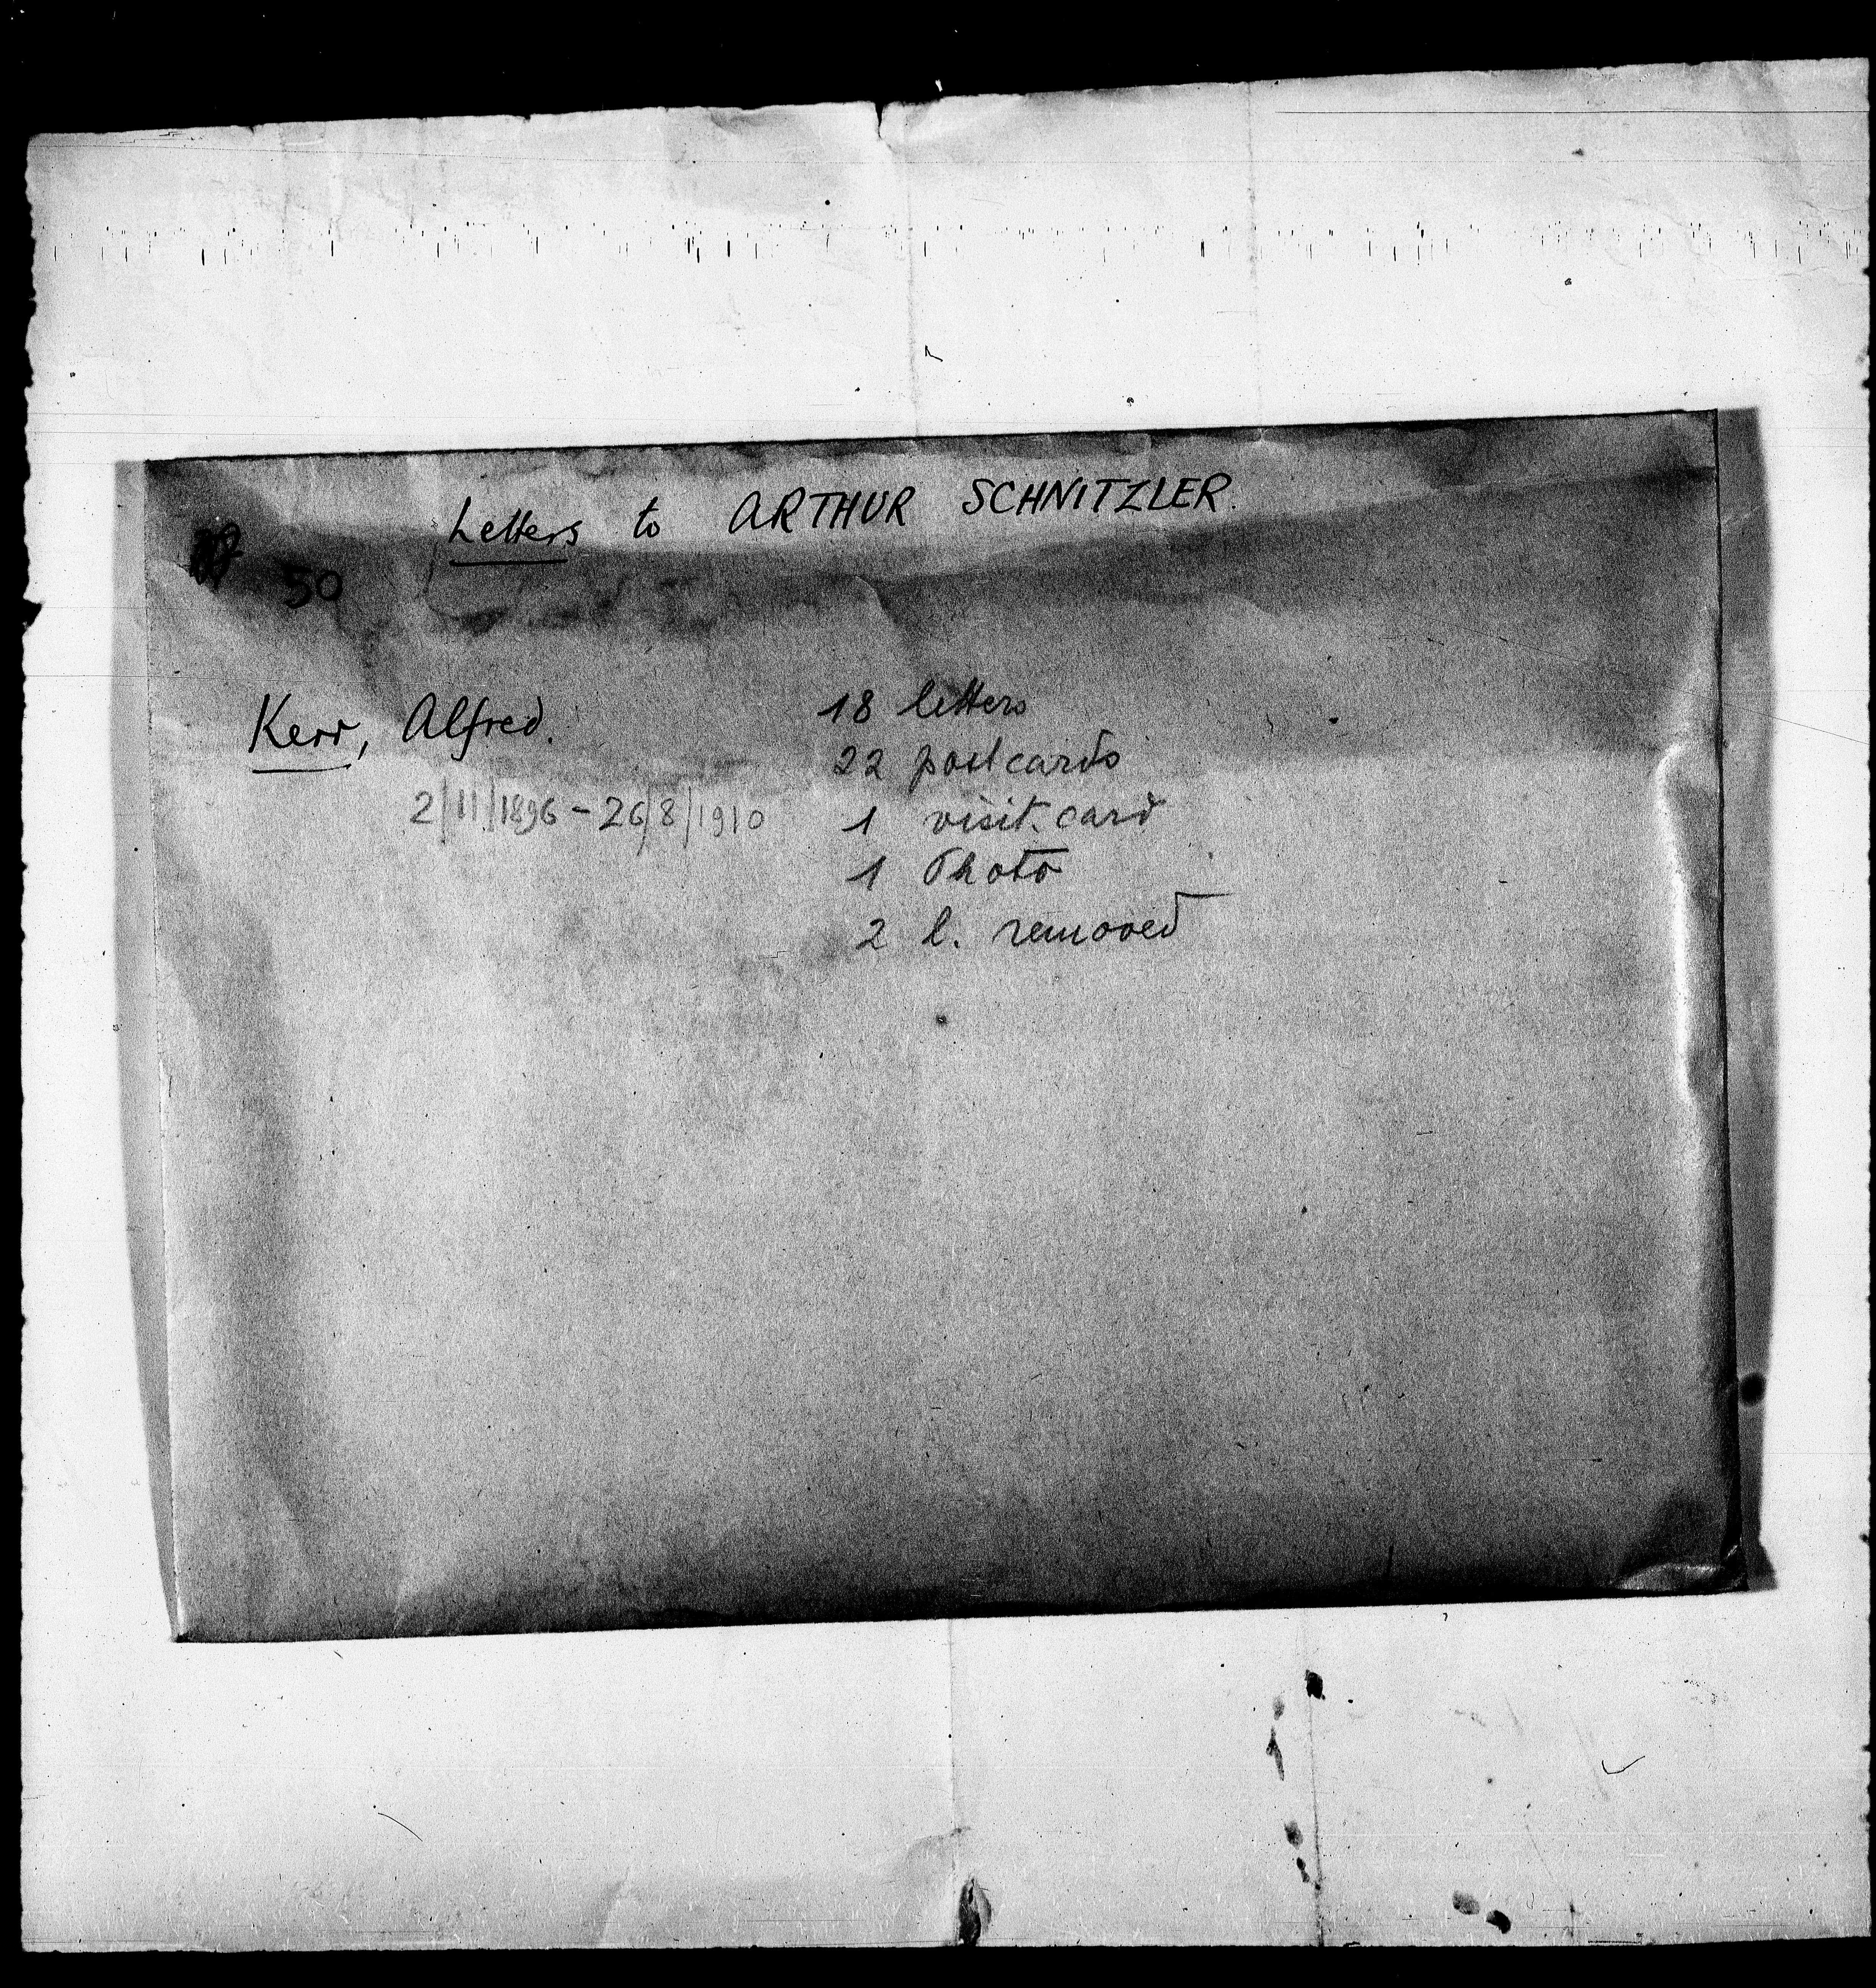 Letters to ARTHUR SCHNITZLER.
50
Kerr, Alfred.
2/11/1896 - 26/8/1910
18 letters
22 postcards
1 visit. card
1 Photo
2 l. removed